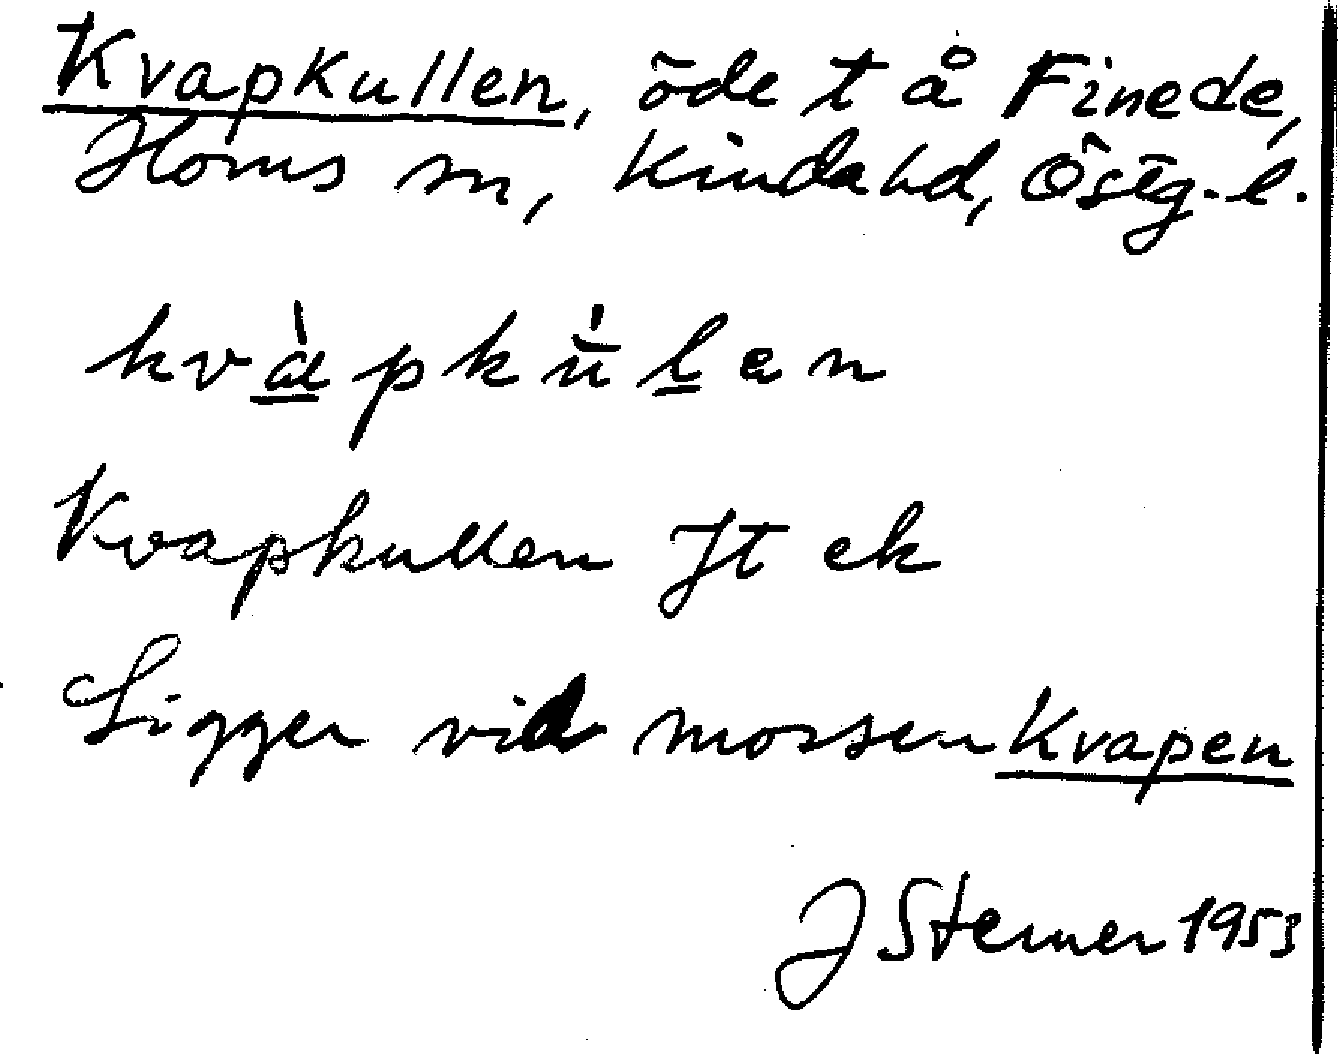 Kvapkullen, öde t å Finede,
Horns sn, Kinda hd, Östg. l.
kvàpkúlen
Kvapkullen Jt ek
Ligger vid mossen Kvapen
J Sterner 1953